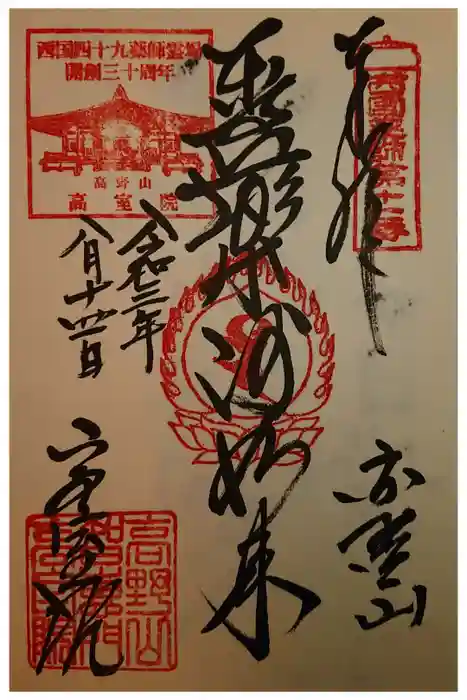 奉拝
西国薬師第十一番
高野山
如来
西国四十九薬師霊場
開創三十周年
高野山
高室院
令和三年
八月十四日
高室院
高野山